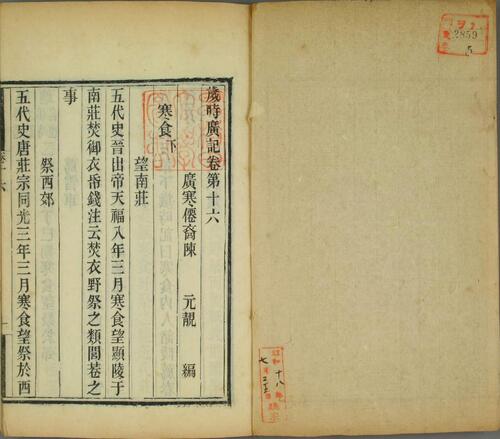 歲時廣記卷第十六
廣寒僊裔陳 元靚 編
寒食下
望南莊
五代史晉出帝天福八年三月寒食望顯陵于
南莊焚御衣帋錢注云焚衣野祭之類閭巷之
事
祭西郊
五代史唐莊宗同光三年三月寒食望祭於西
2859
5
昭和十八年
七月